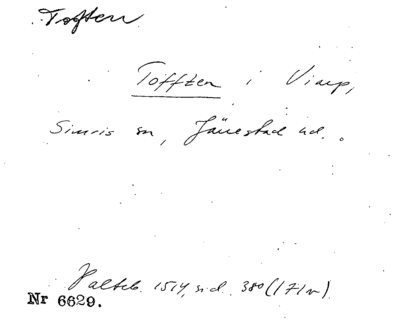 Toften
Tofften i Viarp,
Simris sn, Järrestad hd.
Palteb. 1514, sid. 380 (171v)
Nr 6629.